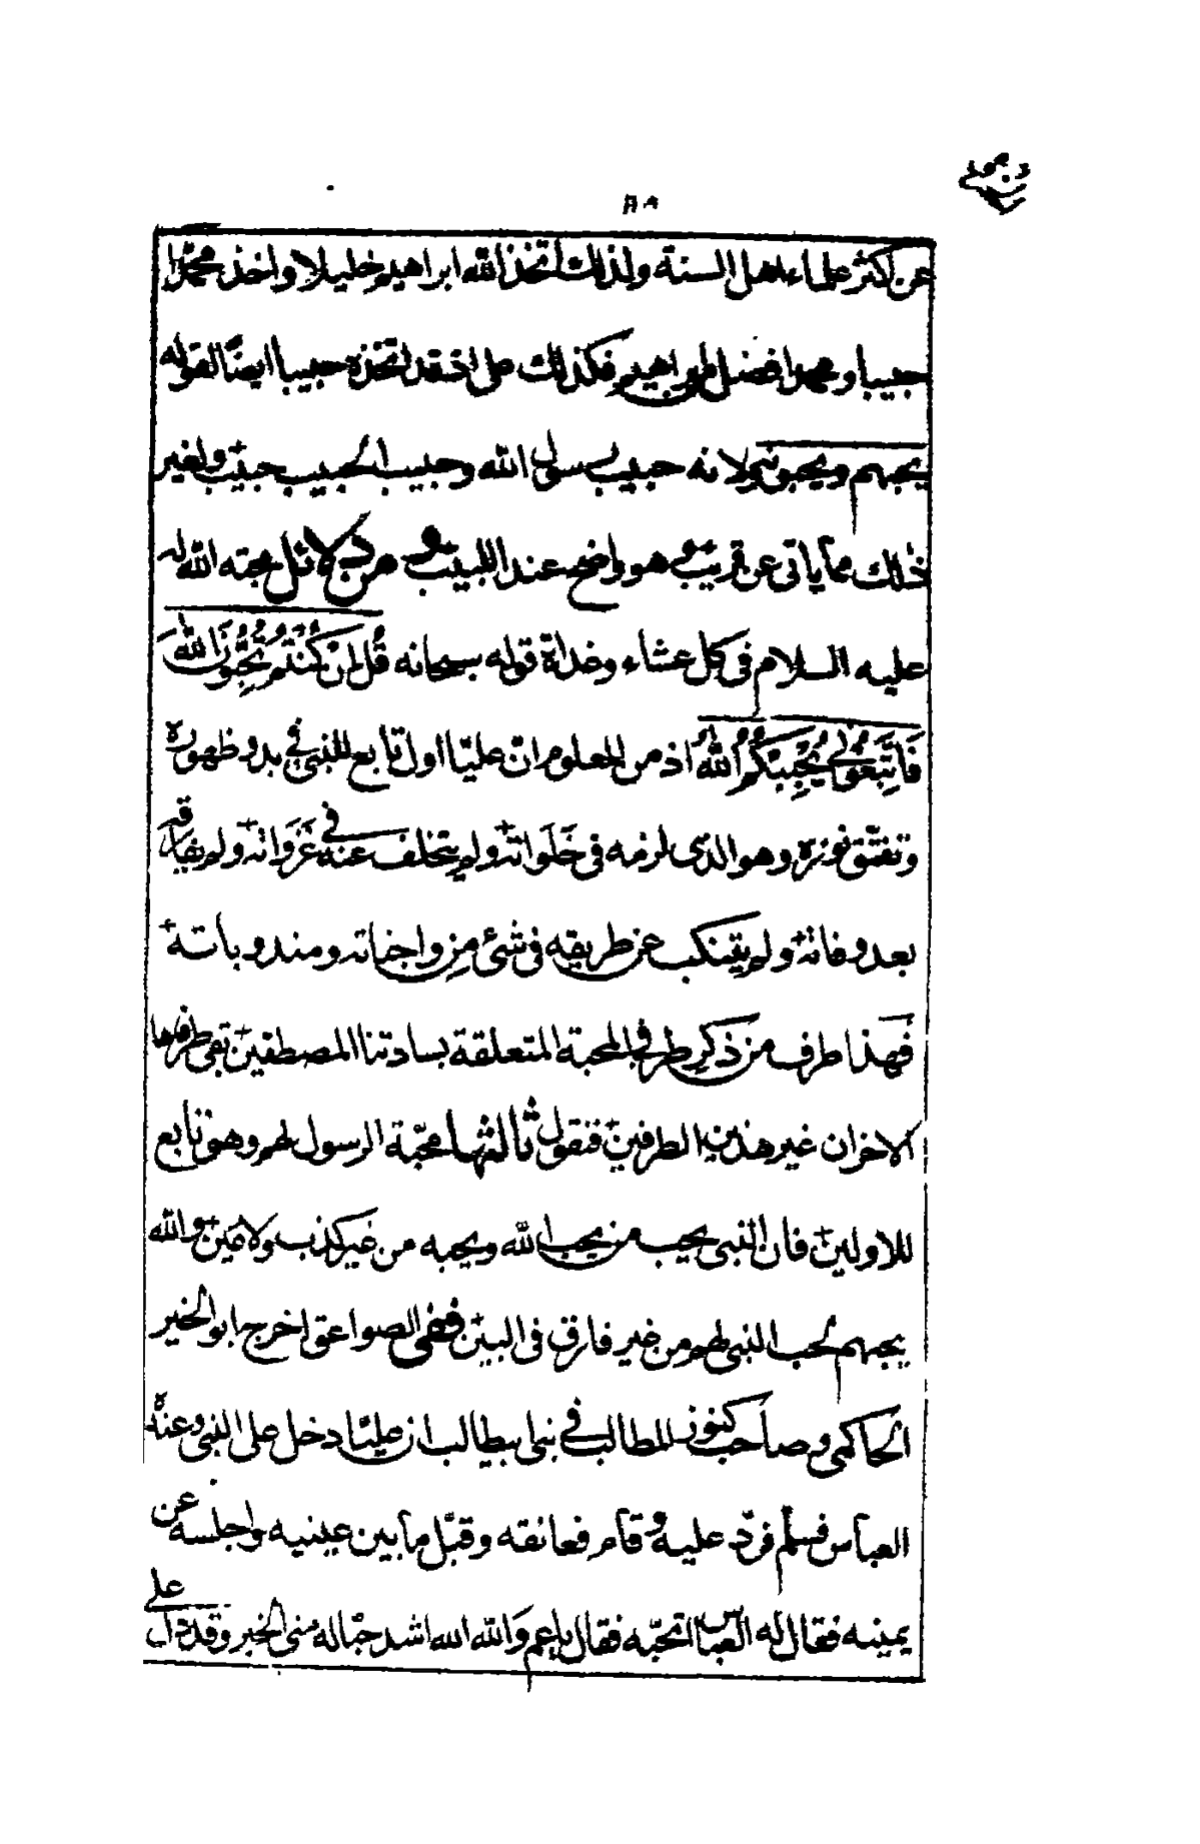 ٨٨
عن اكثر علماء اهل السنة ولذلك اتخذ الله ابراهيم خليلا واخذ محمدا
حبيبا ومحمد افضل من ابراهيم فكذلك علي اذ قد اتخذه حبيبا ايضًا لقوله
يحبهم ويحبونه ولانه حبيب رسول الله وحبيب الحبيب حبيب ولغير
ذلك مما ياتى عن قريب وهو واضح عند اللبيب ومن دلائل محبته الله له
عليه السلام فى كل عشاء وغداة قوله سبحانه قُل اِنْ كُنْتُمْ تُحِبُّونَ الله
فَاتَّبِعُونِي يُحْبِبْكُمُ اللهُ اذ من المعلوم انّ عليّا اول تابع للنبي في بدو ظهوره
وتفتّق نوره وهو الذى لزمه فى خَلَواته ولم يتخلف عنه في غَزَواته ولم يفارقه
بعد وفاته ولم يتنكب عن طريقه فى شئ مِن واجباته ومندوباته
فهذا طرف من ذكر طرفي المحبة المتعلقة بسادتنا المصطفين بقى طرفاها
الاخران غير هذين الطرفين فنقول ثالثها محبّة الرسول لهم وهو تابع
للاولين فان النبى يحب من يحب الله ويحبه من غير كذب ولا مين والله
يحبهم لحب النبى لهم من غير فارق فى البين ففى الصواعق اخرج ابو الخير
الحاكمى وصاحب كنوز المطالب في بنى ابيطالب ان عليّا دخل على النبى وعنده
العباس فسلّم فردّ عليه وقام فعانقه وقبّل ما بين عينيه واجلسه عن
يمينه فقال له العبّاس اتحبّه فقال ياعم والله الله اشد حبّا له منى الخبر وقد دل على